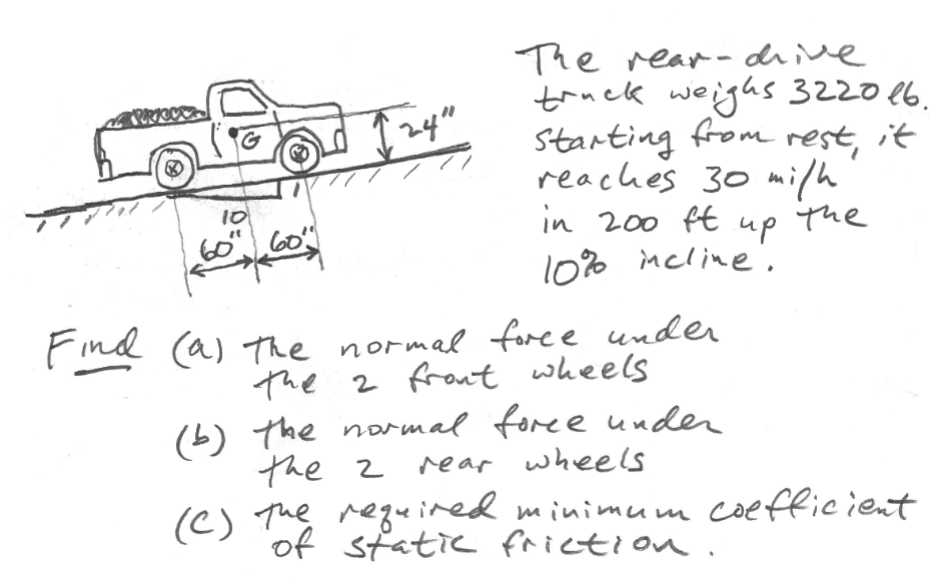 G
24"
1
10
60" 60"
The rear-drive
truck weighs 3220 lb.
Starting from rest, it
reaches 30 mi/h
in 200 ft up the
10% incline.
Find (a) the normal force under
the 2 front wheels
(b) the normal force under
the 2 rear wheels
(c) the required minimum coefficient
of static friction.